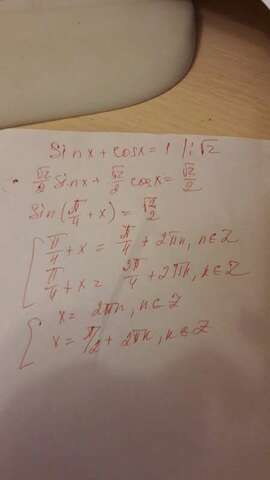 Sinx + cosx = 1 /:√2
√2/2 Sinx + √2/2 cosx = √2/2
Sin(π/4 + x) = √2/2
[ π/4 + x = π/4 + 2πn, n∈Z
π/4 + x = 3π/4 + 2πn, n∈Z
[ x = 2πn, n∈Z
x = π/2 + 2πn, n∈Z